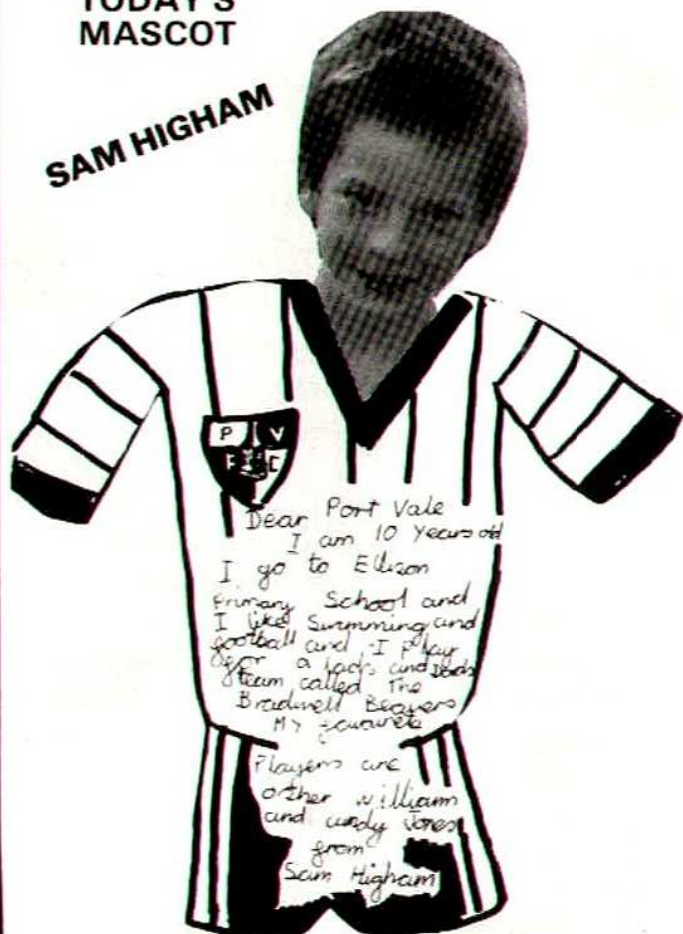 TODAY'S
MASCOT
SAM HIGHAM
P V
F C
Dear Port Vale
I am 10 Years old
I go to Ellison
Primary School and
I like Swimming and
football and I Play
for a lads and Dads
team called The
Bradwell Beavers
My favourete
Players are
other william
and andy Jones
from
Sam Higham